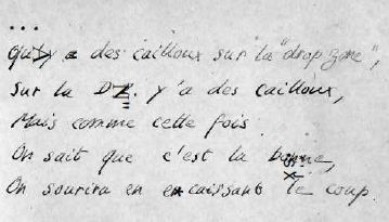 ...
Qu'y a des cailloux sur la "drop zone",
Sur la DZ. y'a des cailloux,
Mais comme cette fois
On sait que c'est la bonne,
On sourira en encaissant le coup.